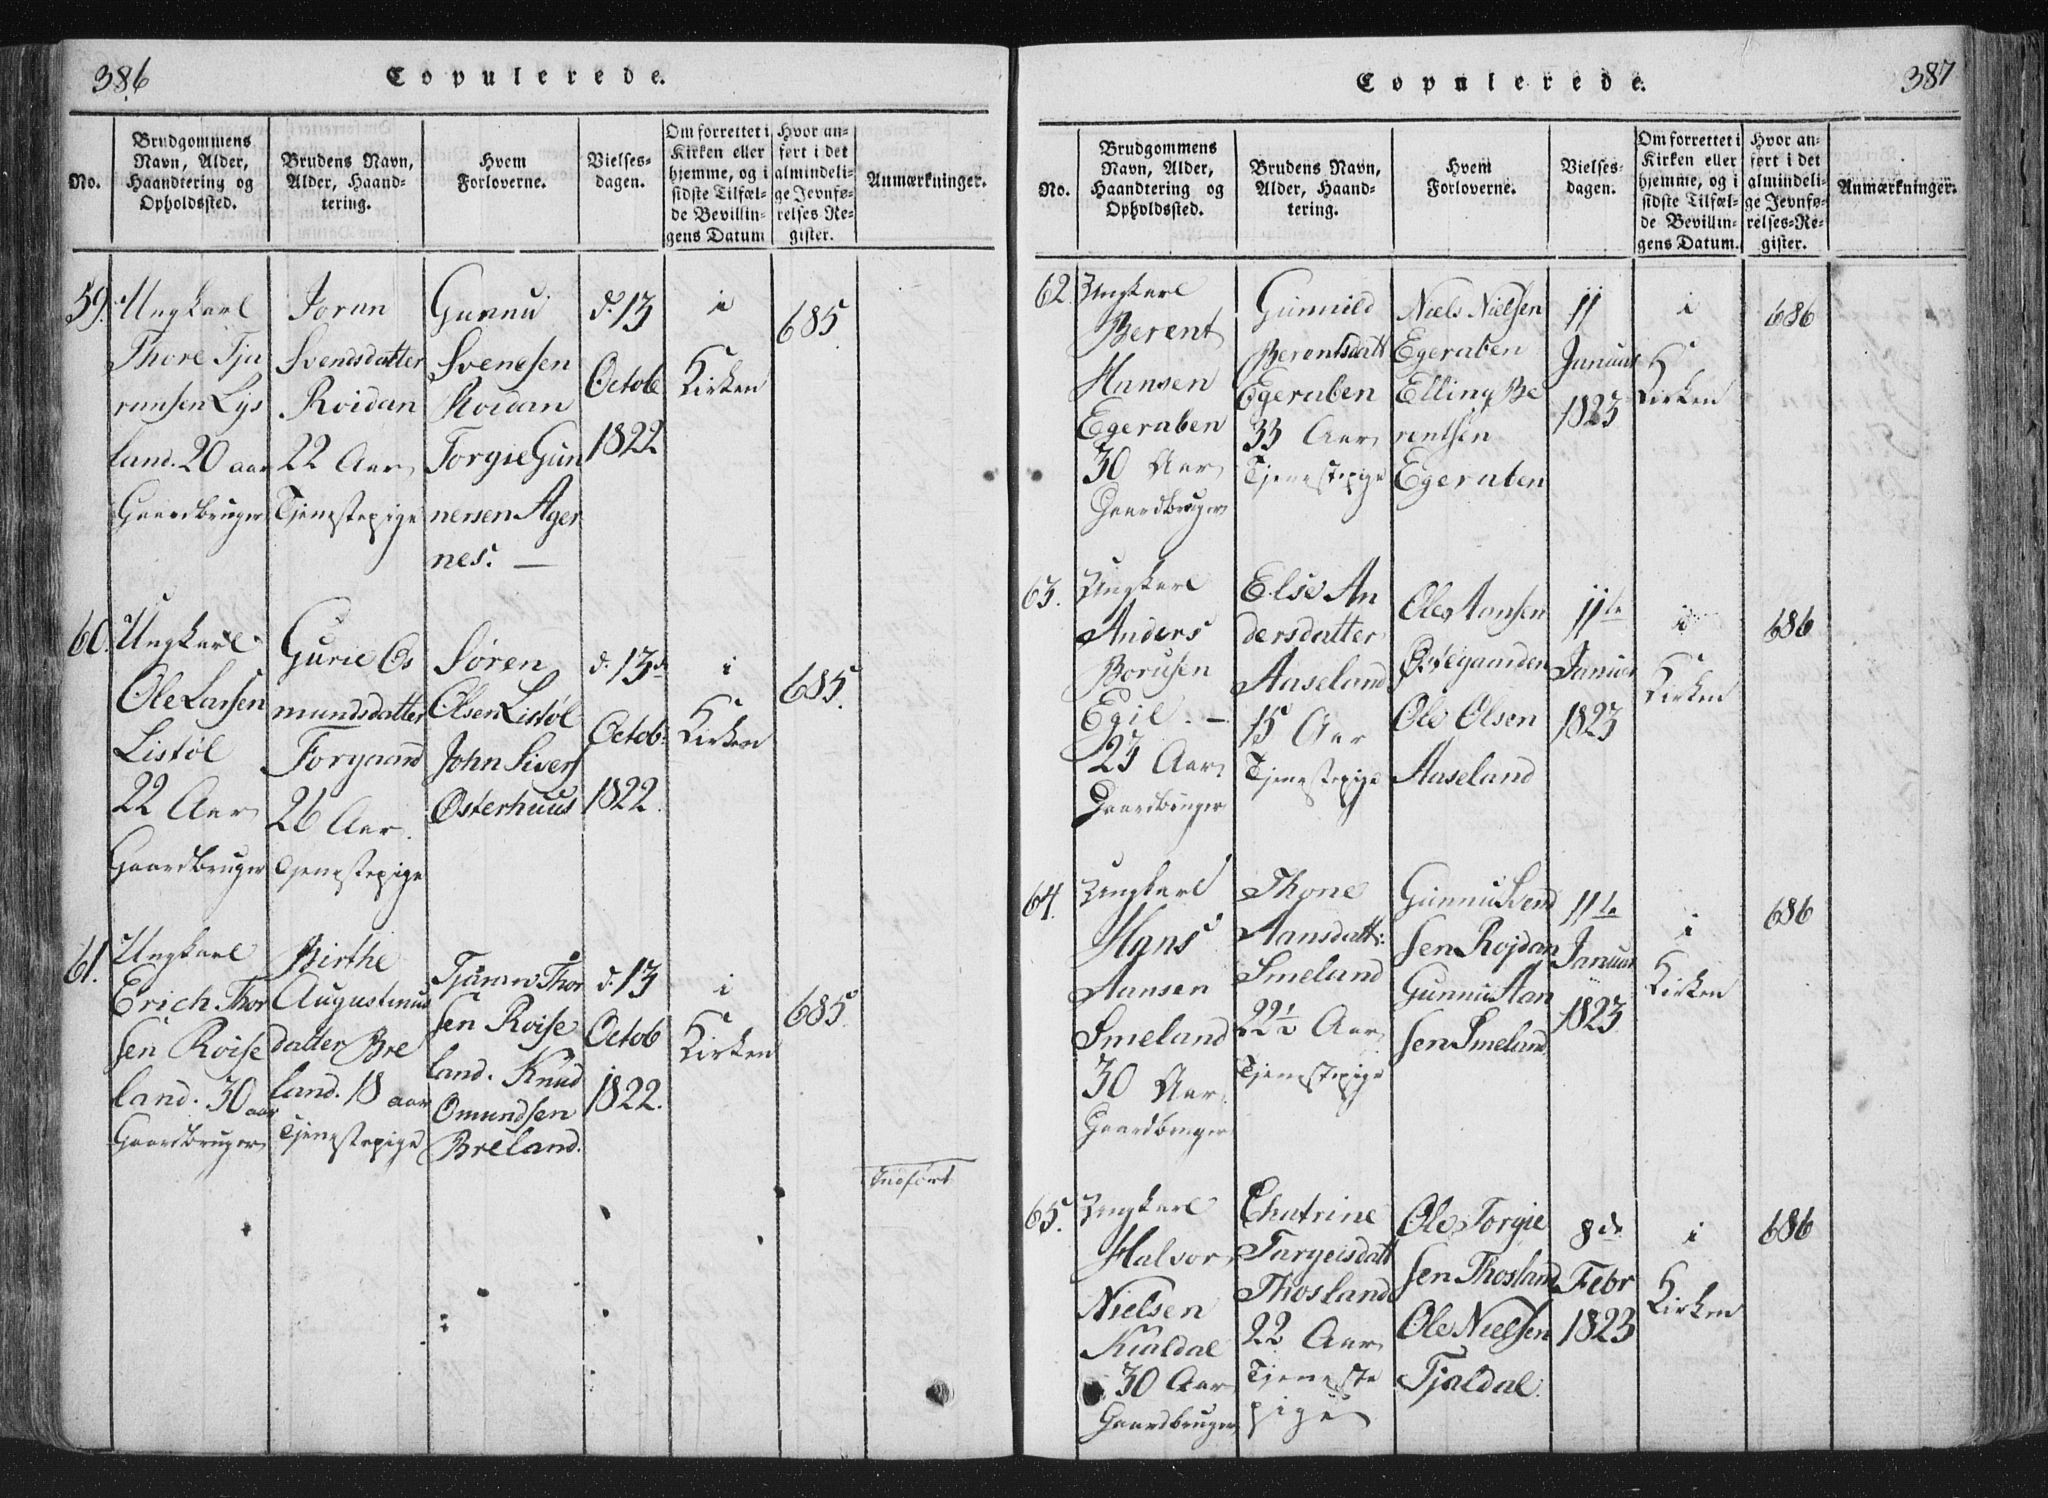 386
Copulerede.
No.
Brudgommens
Navn, Alder,
Haandtering og
Opholdssted.
Brudens Navn,
Alder, Haand-
tering.
Hvem
Forloverne.
Vielses-
dagen.
Om forrettet i
Kirken eller
hjemme, og i
sidste Tilfæl-
de Bevillin-
gens Datum
Hvor an-
ført i det
almindeli-
ge Jevnfø-
relses-Re-
gister.
Anmærkninger.
59.
Ungkarl
Thore Tja
ransen Lys
land. 20 aar
Gaardbruger
Joran
Svendsdatter
Roidan
22 Aar
Tjenestepige
Gunnu
Svenesen
Roidan
Torgie Gun
nersen Ager
nes. —
d. 13
Octobe
1822
i
Kirken
685
60.
Ungkarl
Ole Larsen
Listøl
22 Aar
Gaardbruger
Gurie Os
mundsdatter
Forgaard
26 Aar.
Tjenestepige
Søren
Olsen Listøl
John Sivers
Osterhuus
d. 13d
Octob:
1822.
i
Kirken
685.
61.
Ungkarl
Erich Thor
sen Roise
land. 30 aar
Gaardbruger
Birthe
Augustinus
datter Bre
land. 18 aar
Tjenestepige
Tjøran Thor
sen Roise
land. Knud
Omundsen
Breland.
d. 13
Octob
1822.
i
Kirken
685.
Indført
387
Copulerede.
No.
Brudgommens
Navn, Alder,
Haandtering og
Opholdssted.
Brudens Navn,
Alder, Haand-
tering.
Hvem
Forloverne.
Vielses-
dagen.
Om forrettet i
Kirken eller
hjemme, og i
sidste Tilfæl-
de Bevillin-
gens Datum.
Hvor an-
ført i det
almindeli-
ge Jevnfø-
relses-Re-
gister.
Anmærkninger.
62.
Ungkarl
Berent
Hansen
Egeraben
30 Aar
Gaardbruger
Gunnild
Berentsdatt
Egeraben
33 Aar
Tjenestepige
Niels Nielsen
Egeraben
Elling Be
rentsen
Egeraben
11
Januar
1823
i
Kirken
686
63.
Ungkarl
Anders
Borusen
Egil. —
23 Aar
Gaardbruger
Else An
dersdatter
Aaseland
15 Aar
Tjenestepige
Ole Aansen
Østegaarden
Ole Olsen
Aaseland
11te
Januar
1823
i
Kirken
686
64.
Ungkarl
Hans
Aansen
Smeland
30 Aar.
Gaardbruger
Thone
Aansdatt:
Smeland
22½ Aar
Tjenestepige
Gunnu Svend
sen Rojdan
Gunnu Aan
sen Smeland
11te
Januar
1823
i
Kirken
686
65.
Ungkarl
Halvor
Nielsen
Kialdal
30 Aar
Gaardbruger
Chatrine
Targeisdatt
Thosland
22 Aar
Tjeneste
pige
Ole Torgie
sen Thosland
Ole Nielsen
Tjaldal.
8de
Febr
1823
i
Kirken
686